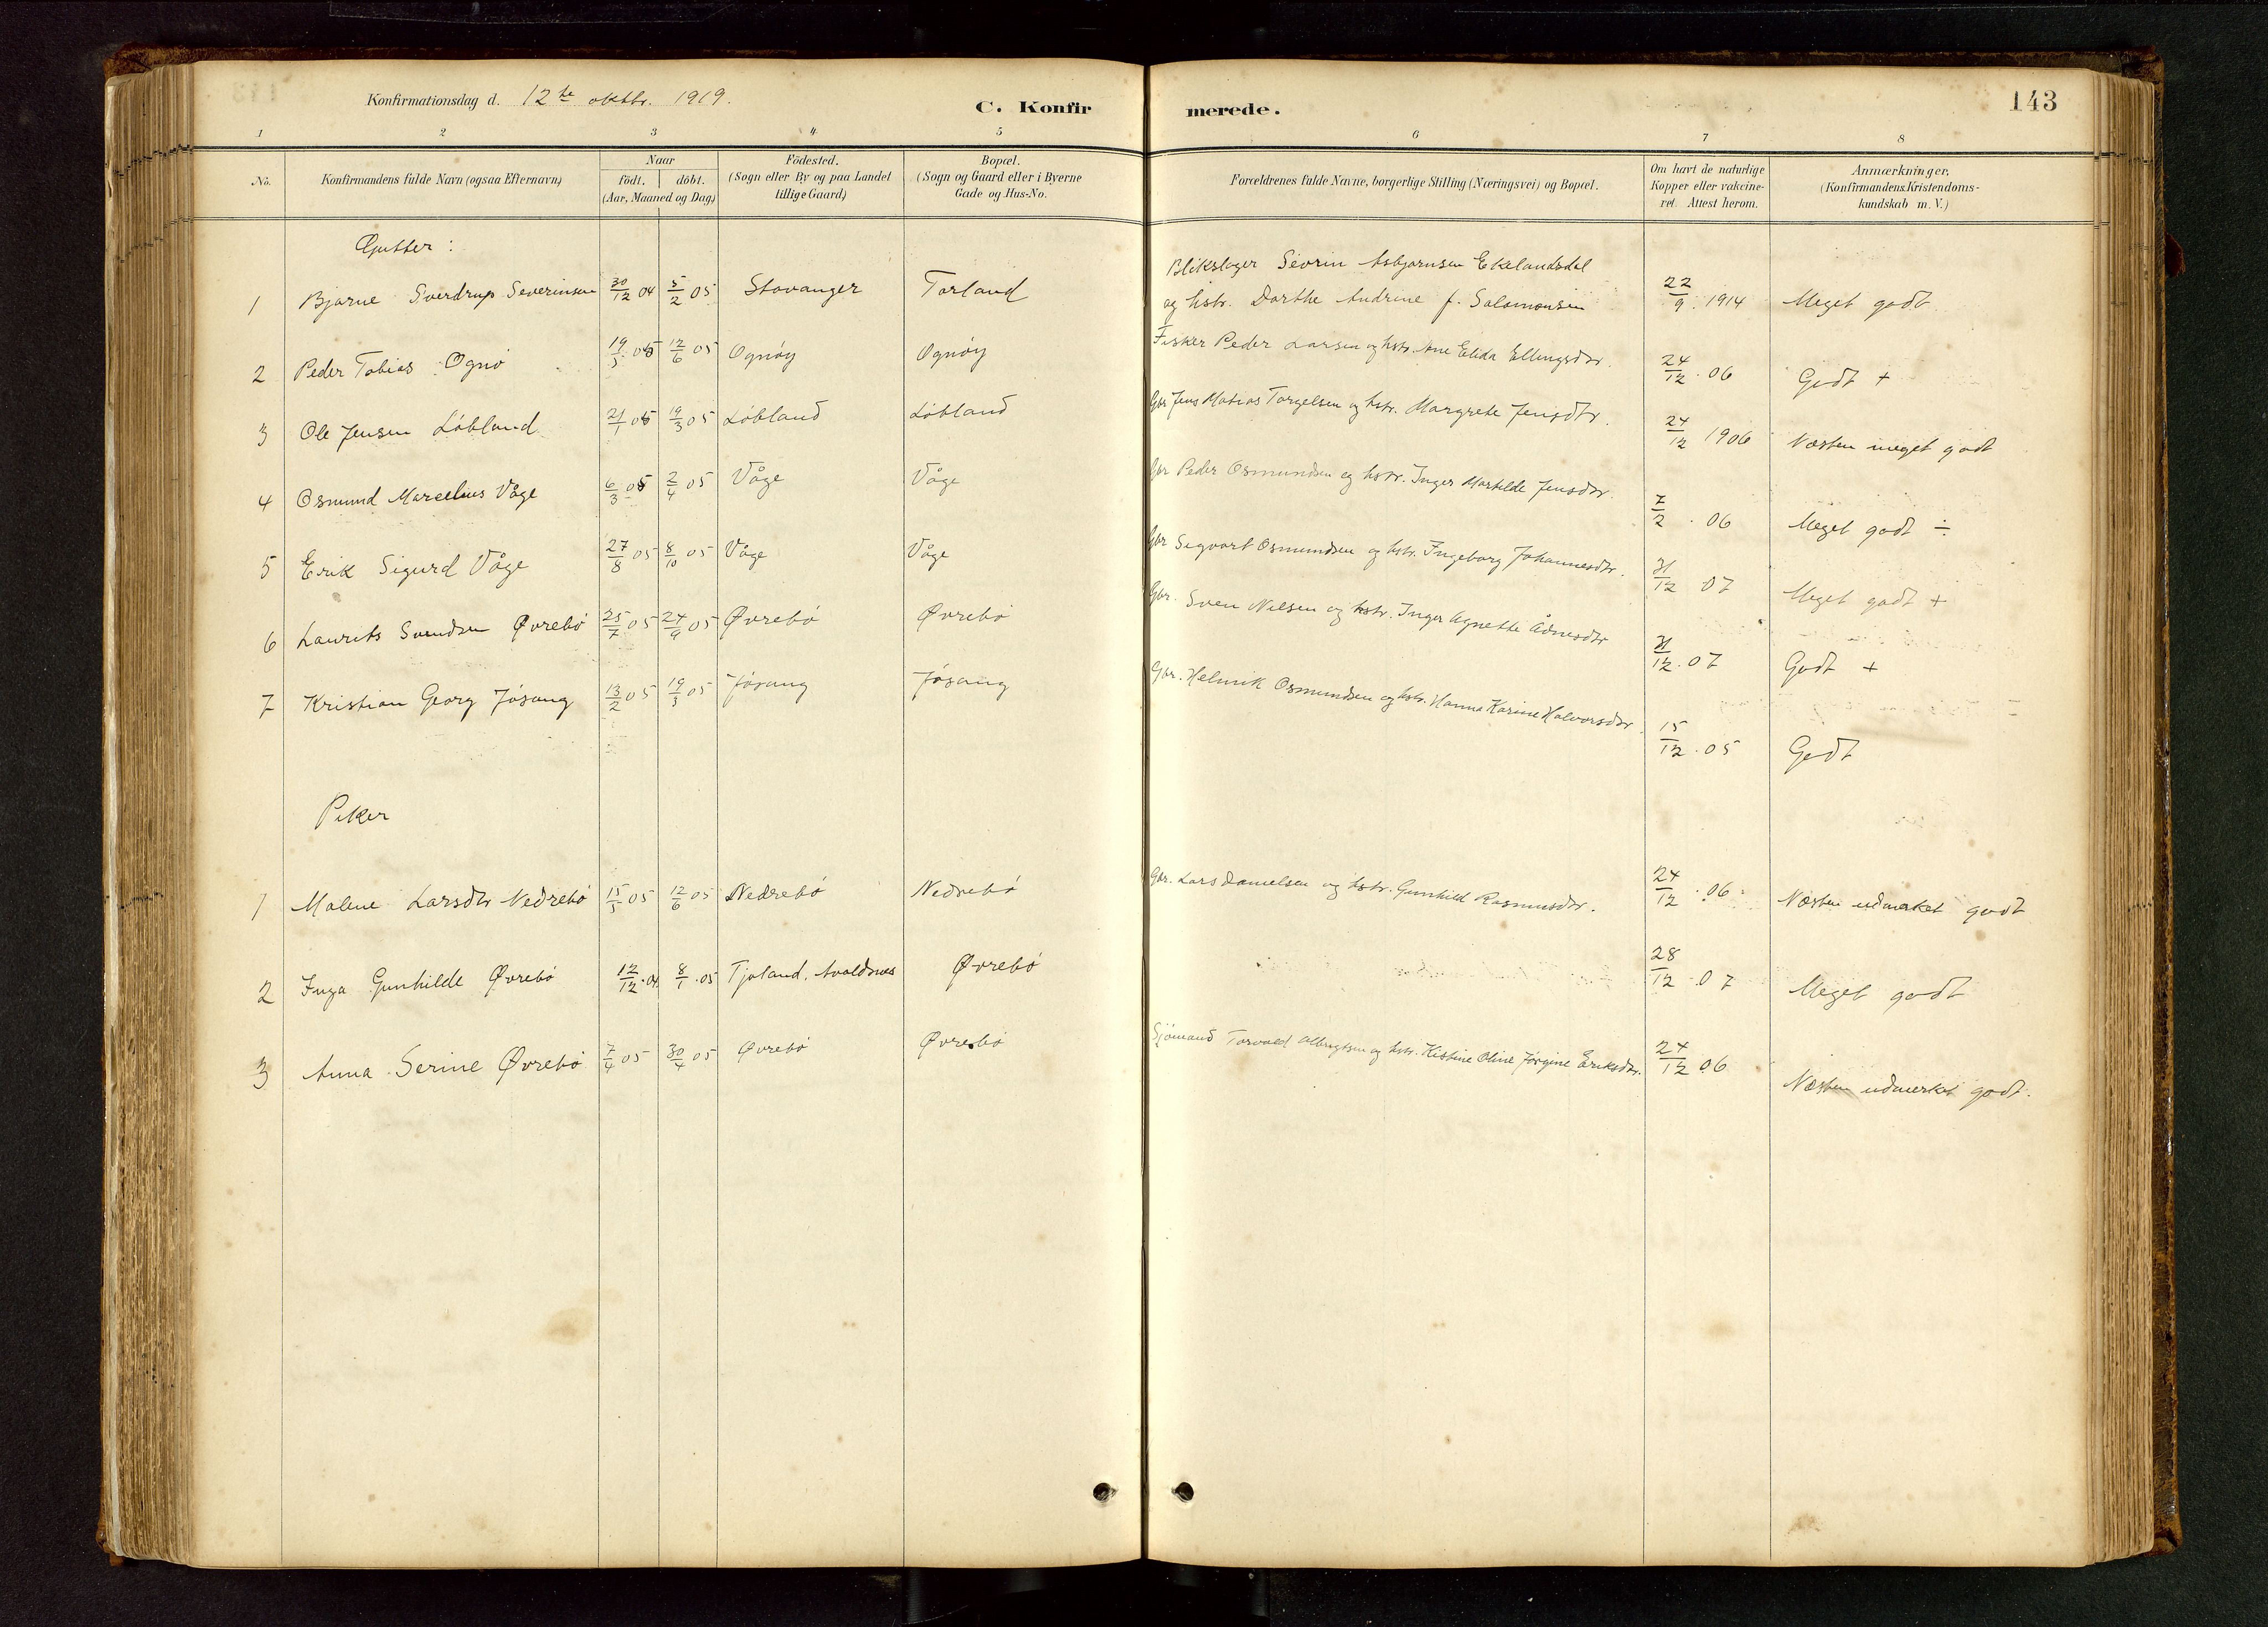 Konfirmationsdag d. 12te oktbr. 1919.
C. Konfirmerede.
143
1 2 3 4 5 6 7 8
No.
Konfirmandens fulde Navn (ogsaa Efternavn)
Naar
födt. döbt.
(Aar, Maaned og Dag)
Födested.
(Sogn eller By og paa Landet
tillige Gaard)
Bopæl.
(Sogn og Gaard eller i Byerne
Gade og Hus-No.
Forældrenes fulde Navne, borgerlige Stilling (Næringsvei) og Bopæl.
Om havt de naturlige
Kopper eller vakcine-
ret. Attest herom.
Anmærkninger.
(Konfirmandens Kristendoms-
kundskab m. V.)
Gutter:
1 Bjarne Sverdrup Severinsen 30/12 04 5/2 05 Stavanger Torland Blikslager Sevrin Asbjørnsen Ekelandsdal
og hstr. Dorthe Andrine f. Salomonsen 22/9 1914 Meget godt
2 Peder Tobias Ognö 19/5 05 12/6 05 Ognöy Ognöy Fisker Peder Larsen og hstr. Ane Elida Ellingsdtr. 24/12 06 Godt +
3 Ole Jensen Löbland 21/1 05 19/3 05 Löbland Löbland Gbr Jens Matias Torgelsen og hstr. Margrete Jensdtr. 24/12 1906 Næsten meget godt
4 Osmund Marcelius Våge 6/3 05 2/4 05 Våge Våge Gbr Peder Osmundsen og hstr. Inger Martilde Jensdtr. 7/2 06 Meget godt ÷
5 Erik Sigurd Våge 27/8 05 8/10 05 Våge Våge Gbr Sigvart Osmundsen og hstr. Ingeborg Johannesdtr. 31/12 07 Meget godt +
6 Laurits Svendsen Øvrebö 25/7 05 24/9 05 Øvrebö Øvrebö Gbr. Sven Nilsen og hstr. Inger Agnette Ådnesdtr 31/12 07 Godt +
7 Kristian Georg Jösang 13/2 05 19/3 05 Jösang Jösang Gbr. Helmik Osmundsen og hstr. Hanna Karine Halvorsdtr. 15/12 05 Godt
Piker
1 Malene Larsdtr Nedrebö 15/5 05 12/6 05 Nedrebö Nedrebö Gbr. Lars Danielsen og hstr. Gunhild Rasmusdtr. 24/12 06 Næsten udmerket godt
2 Inga Gunhilde Øvrebö 12/12 04 8/1 05 Tjoland, Avaldsnes Øvrebö 28/12 07 Meget godt
3 Anna Serine Øvrebö 7/4 05 30/4 05 Øvrebö Øvrebö Sjömand Torvald Albrigtsen og hstr. Kistine Oline Jørgine Eriksdtr. 24/12 06 Næsten udmerket godt.